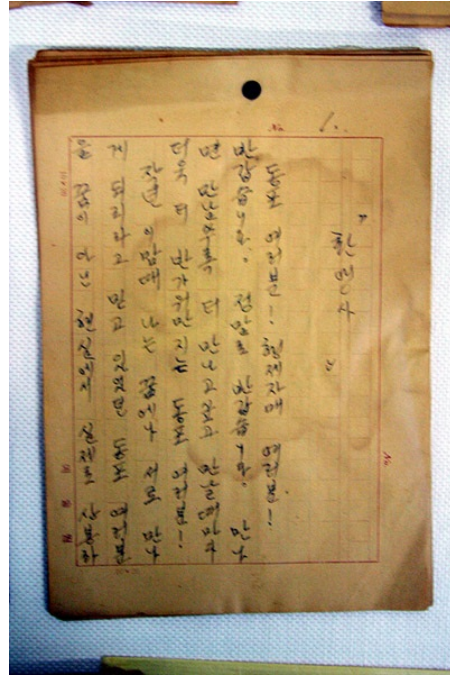 No. 1.
" 환영사 "
동포 여러분! 형제자매 여러분!
반갑습니다. 정말로 반갑습니다. 만나
면 만날수록 더 만나고싶고 만날때마다
더욱 더 반가워만지는 동포 여러분!
작년 이맘때 나는 꿈에나 서로 만나
게 되리라고 믿고 있었던 동포 여러분
을 꿈이 아닌 현실에서 실제로 상봉하